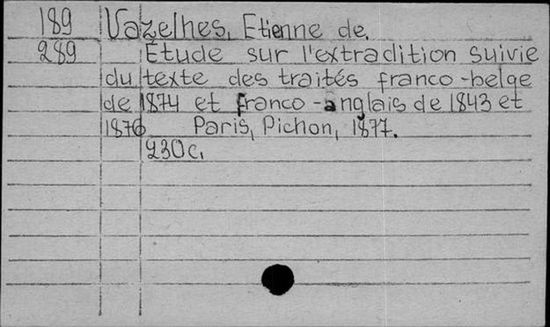 189 Vazelhes, Etienne de.
289 Étude sur l'extradition suivie
du texte des traités franco-belge
de 1874 et franco-anglais de 1843 et
1876 Paris, Pichon, 1877.
230c.